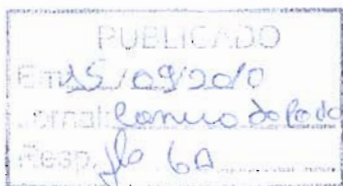 PUBLICADO
Em: 15/09/2010
Jornal: Correio do Povo
Resp. fls 6A